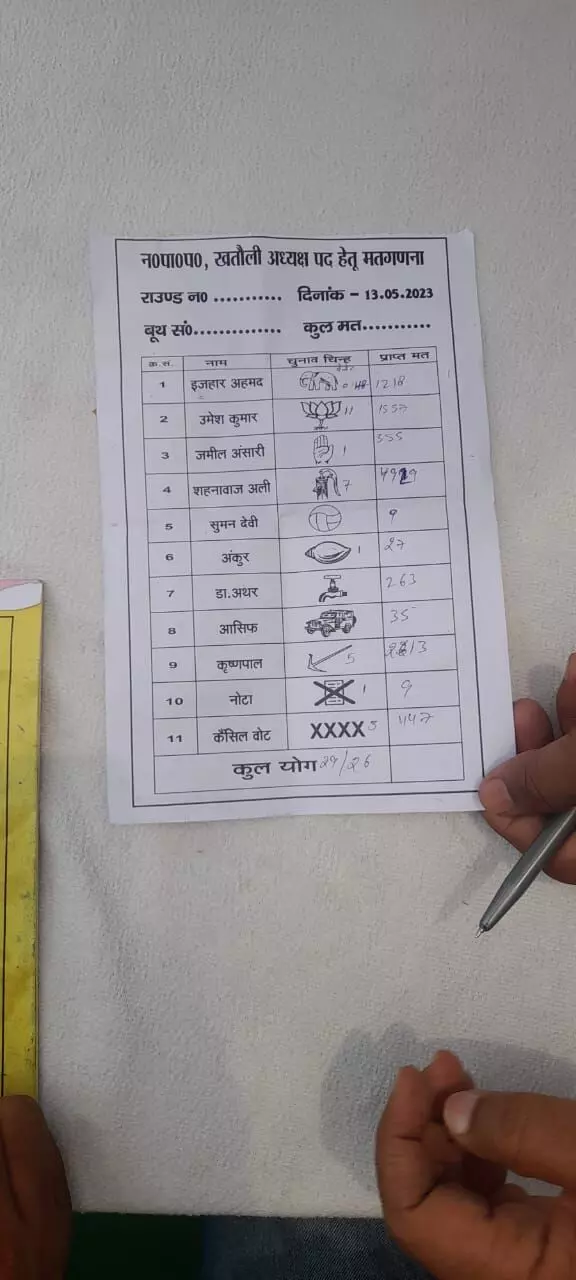 न०पा०प०, खतौली अध्यक्ष पद हेतू मतगणना
राउण्ड न० ........... दिनांक - 13.05.2023
बूथ सं०.............. कुल मत...........
क्र.सं. नाम चुनाव चिन्ह प्राप्त मत
1 इजहार अहमद 1218
2 उमेश कुमार 11 1557
3 जमील अंसारी 1 355
4 शहनावाज अली 7
5 सुमन देवी 9
6 अंकुर 1 27
7 डा.अथर 263
8 आसिफ 35
9 कृष्णपाल 5
10 नोटा 1 9
11 कैंसिल वोट XXXX 5
कुल योग 29/26